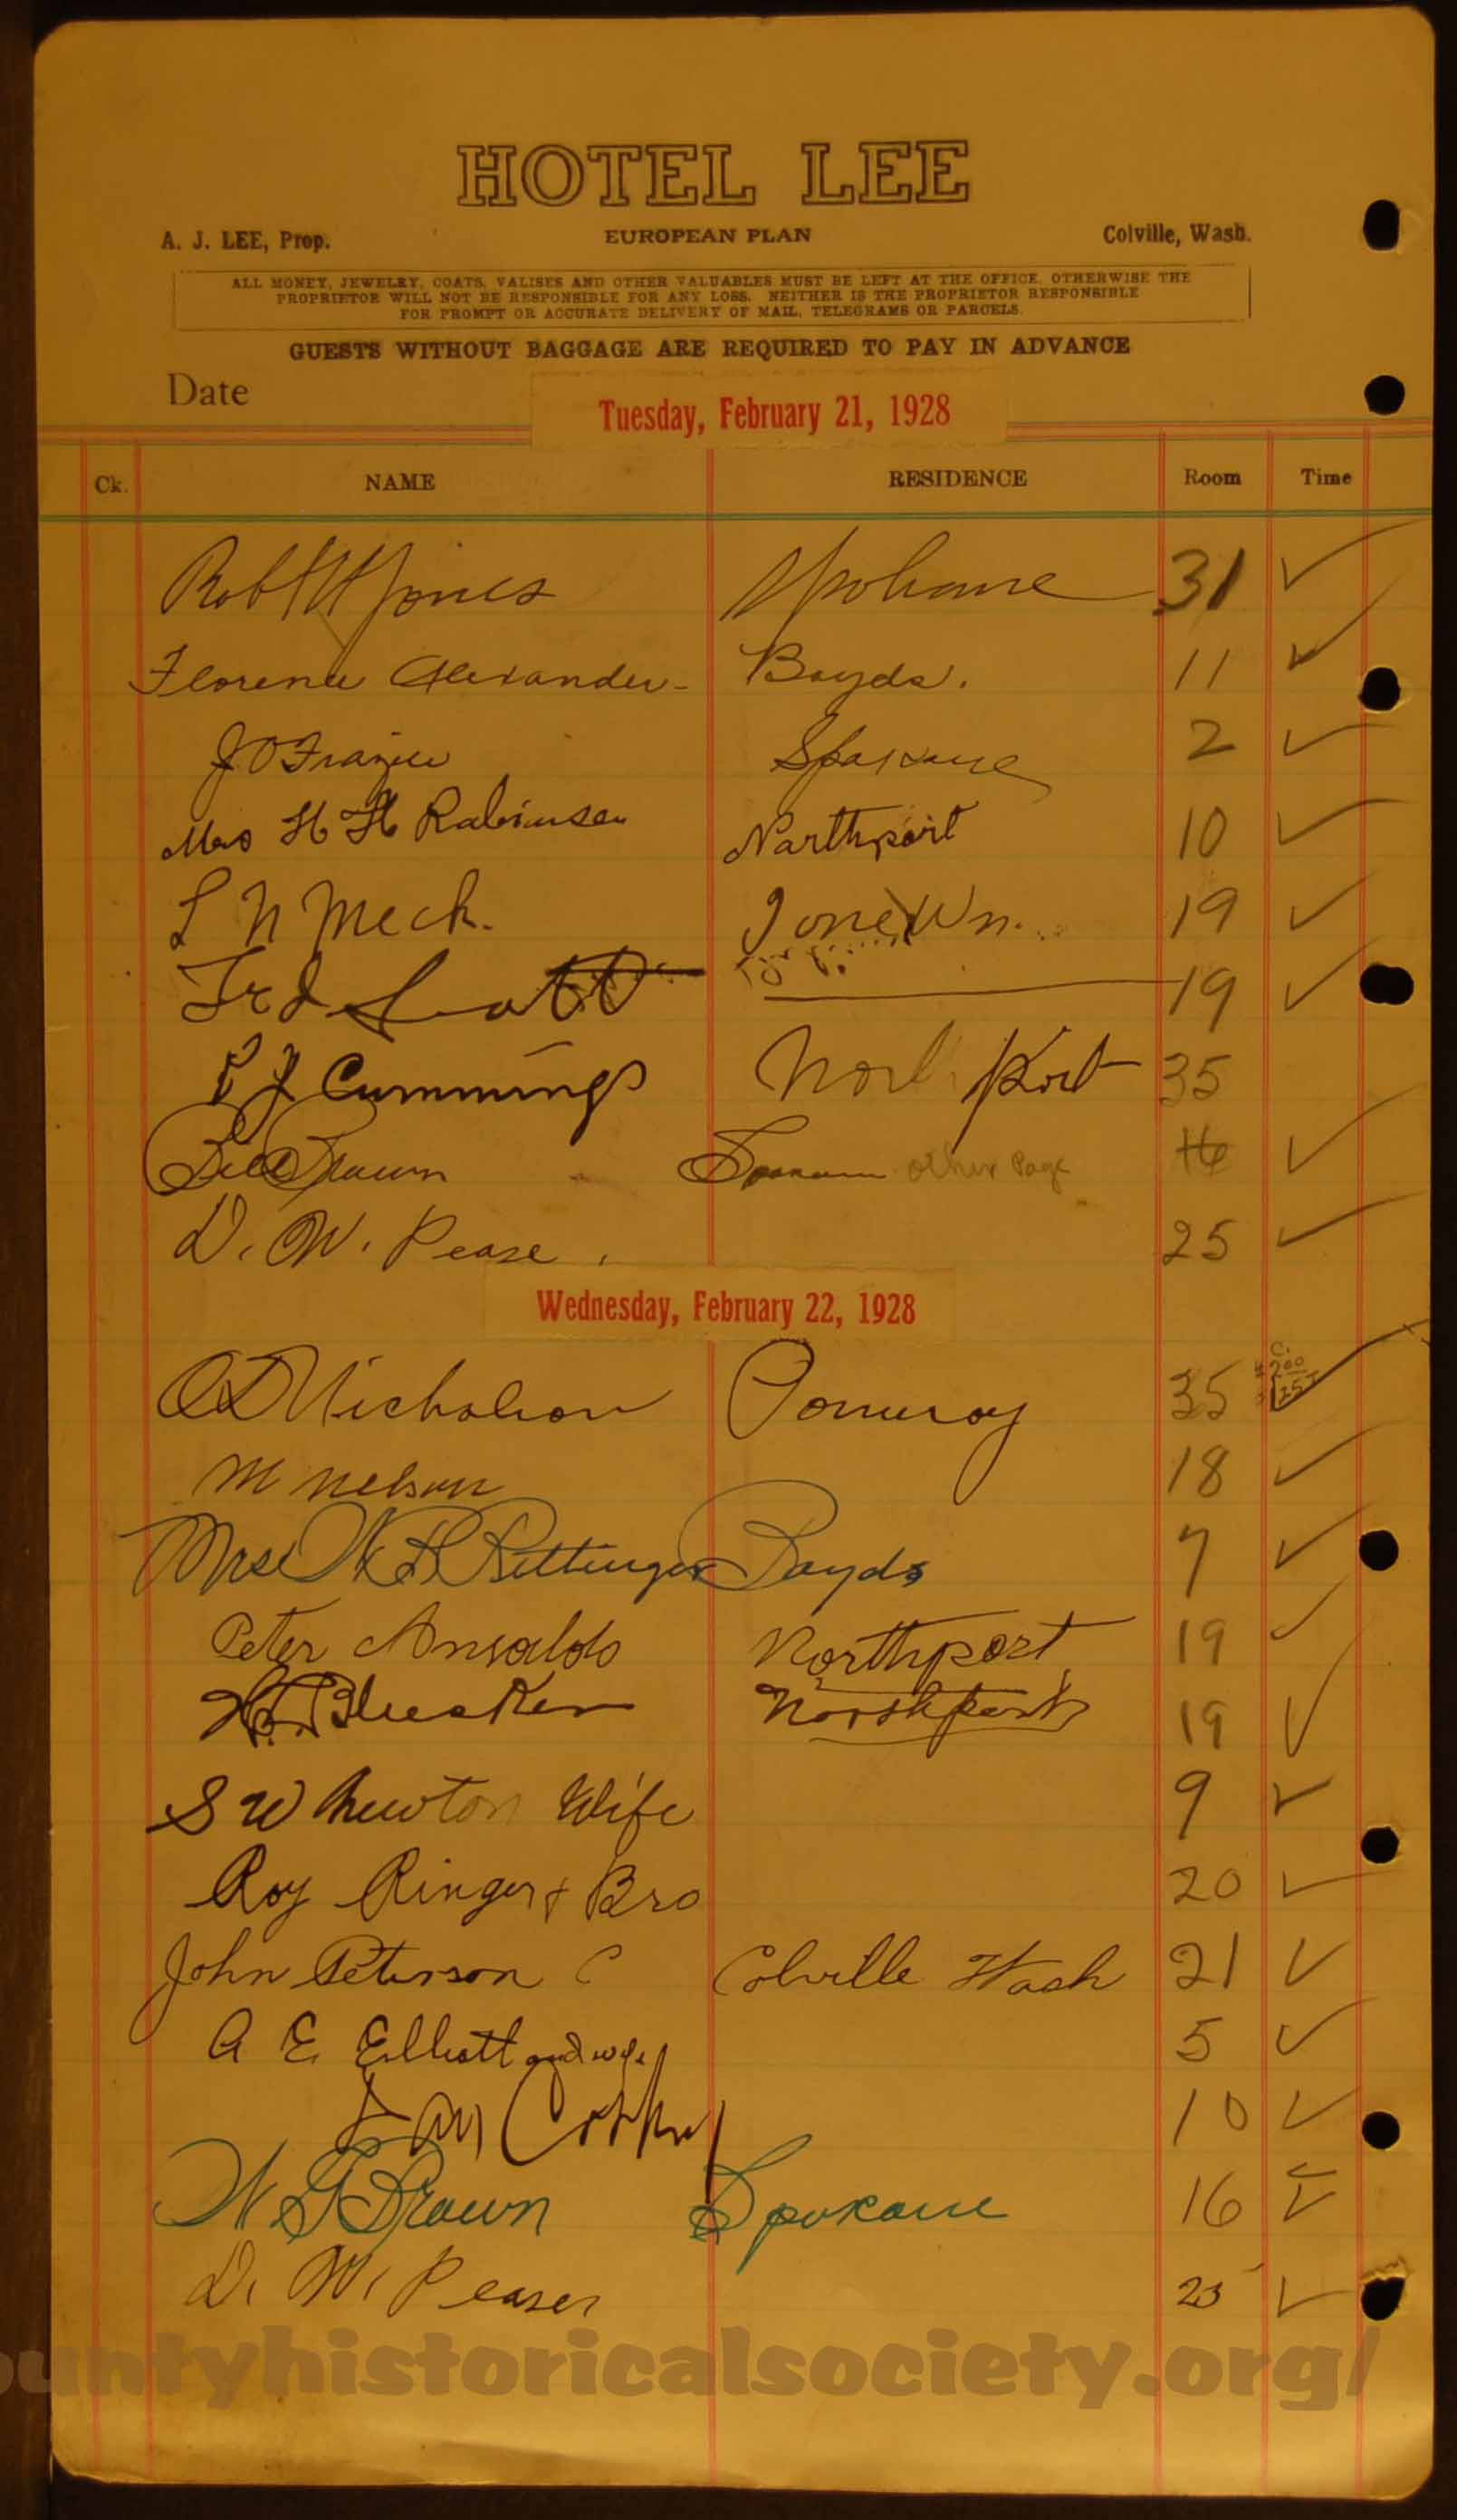 HOTEL LEE
A. J. LEE, Prop. EUROPEAN PLAN Colville, Wash.
ALL MONEY, JEWELRY, COATS, VALISES AND OTHER VALUABLES MUST BE LEFT AT THE OFFICE, OTHERWISE THE
PROPRIETOR WILL NOT BE RESPONSIBLE FOR ANY LOSS. NEITHER IS THE PROPRIETOR RESPONSIBLE
FOR PROMPT OR ACCURATE DELIVERY OF MAIL, TELEGRAMS OR PARCELS.
GUESTS WITHOUT BAGGAGE ARE REQUIRED TO PAY IN ADVANCE
Date
Tuesday, February 21, 1928
Ck. NAME RESIDENCE Room Time
Jones Spokane 31 ✓
Florence Alexander Boyds. 11 ✓
J O Frazier Spokane 2 ✓
Mrs H H Robinson Northport 10 ✓
L N Meck. Ione Wn. 19 ✓
Scott 19 ✓
Cummings North Port 35
Brown Spokane other Page 16 ✓
D. W. Pease. 25 ✓
Wednesday, February 22, 1928
Nicholson Pomeroy 35 ✓
M Nelson 18 ✓
Mrs Rettinger Boyds 7 ✓
Peter Ansaldo Northport 19 ✓
Northport 19 ✓
S W Newton Wife 9 ✓
Roy Ringer + Bro 20 ✓
John Peterson C Colville Wash 21 ✓
A E Elliott and wife 5 ✓
10 ✓
W G Brown Spokane 16 ✓
D. W. Pease 25 ✓
untyhistoricalsociety.org/